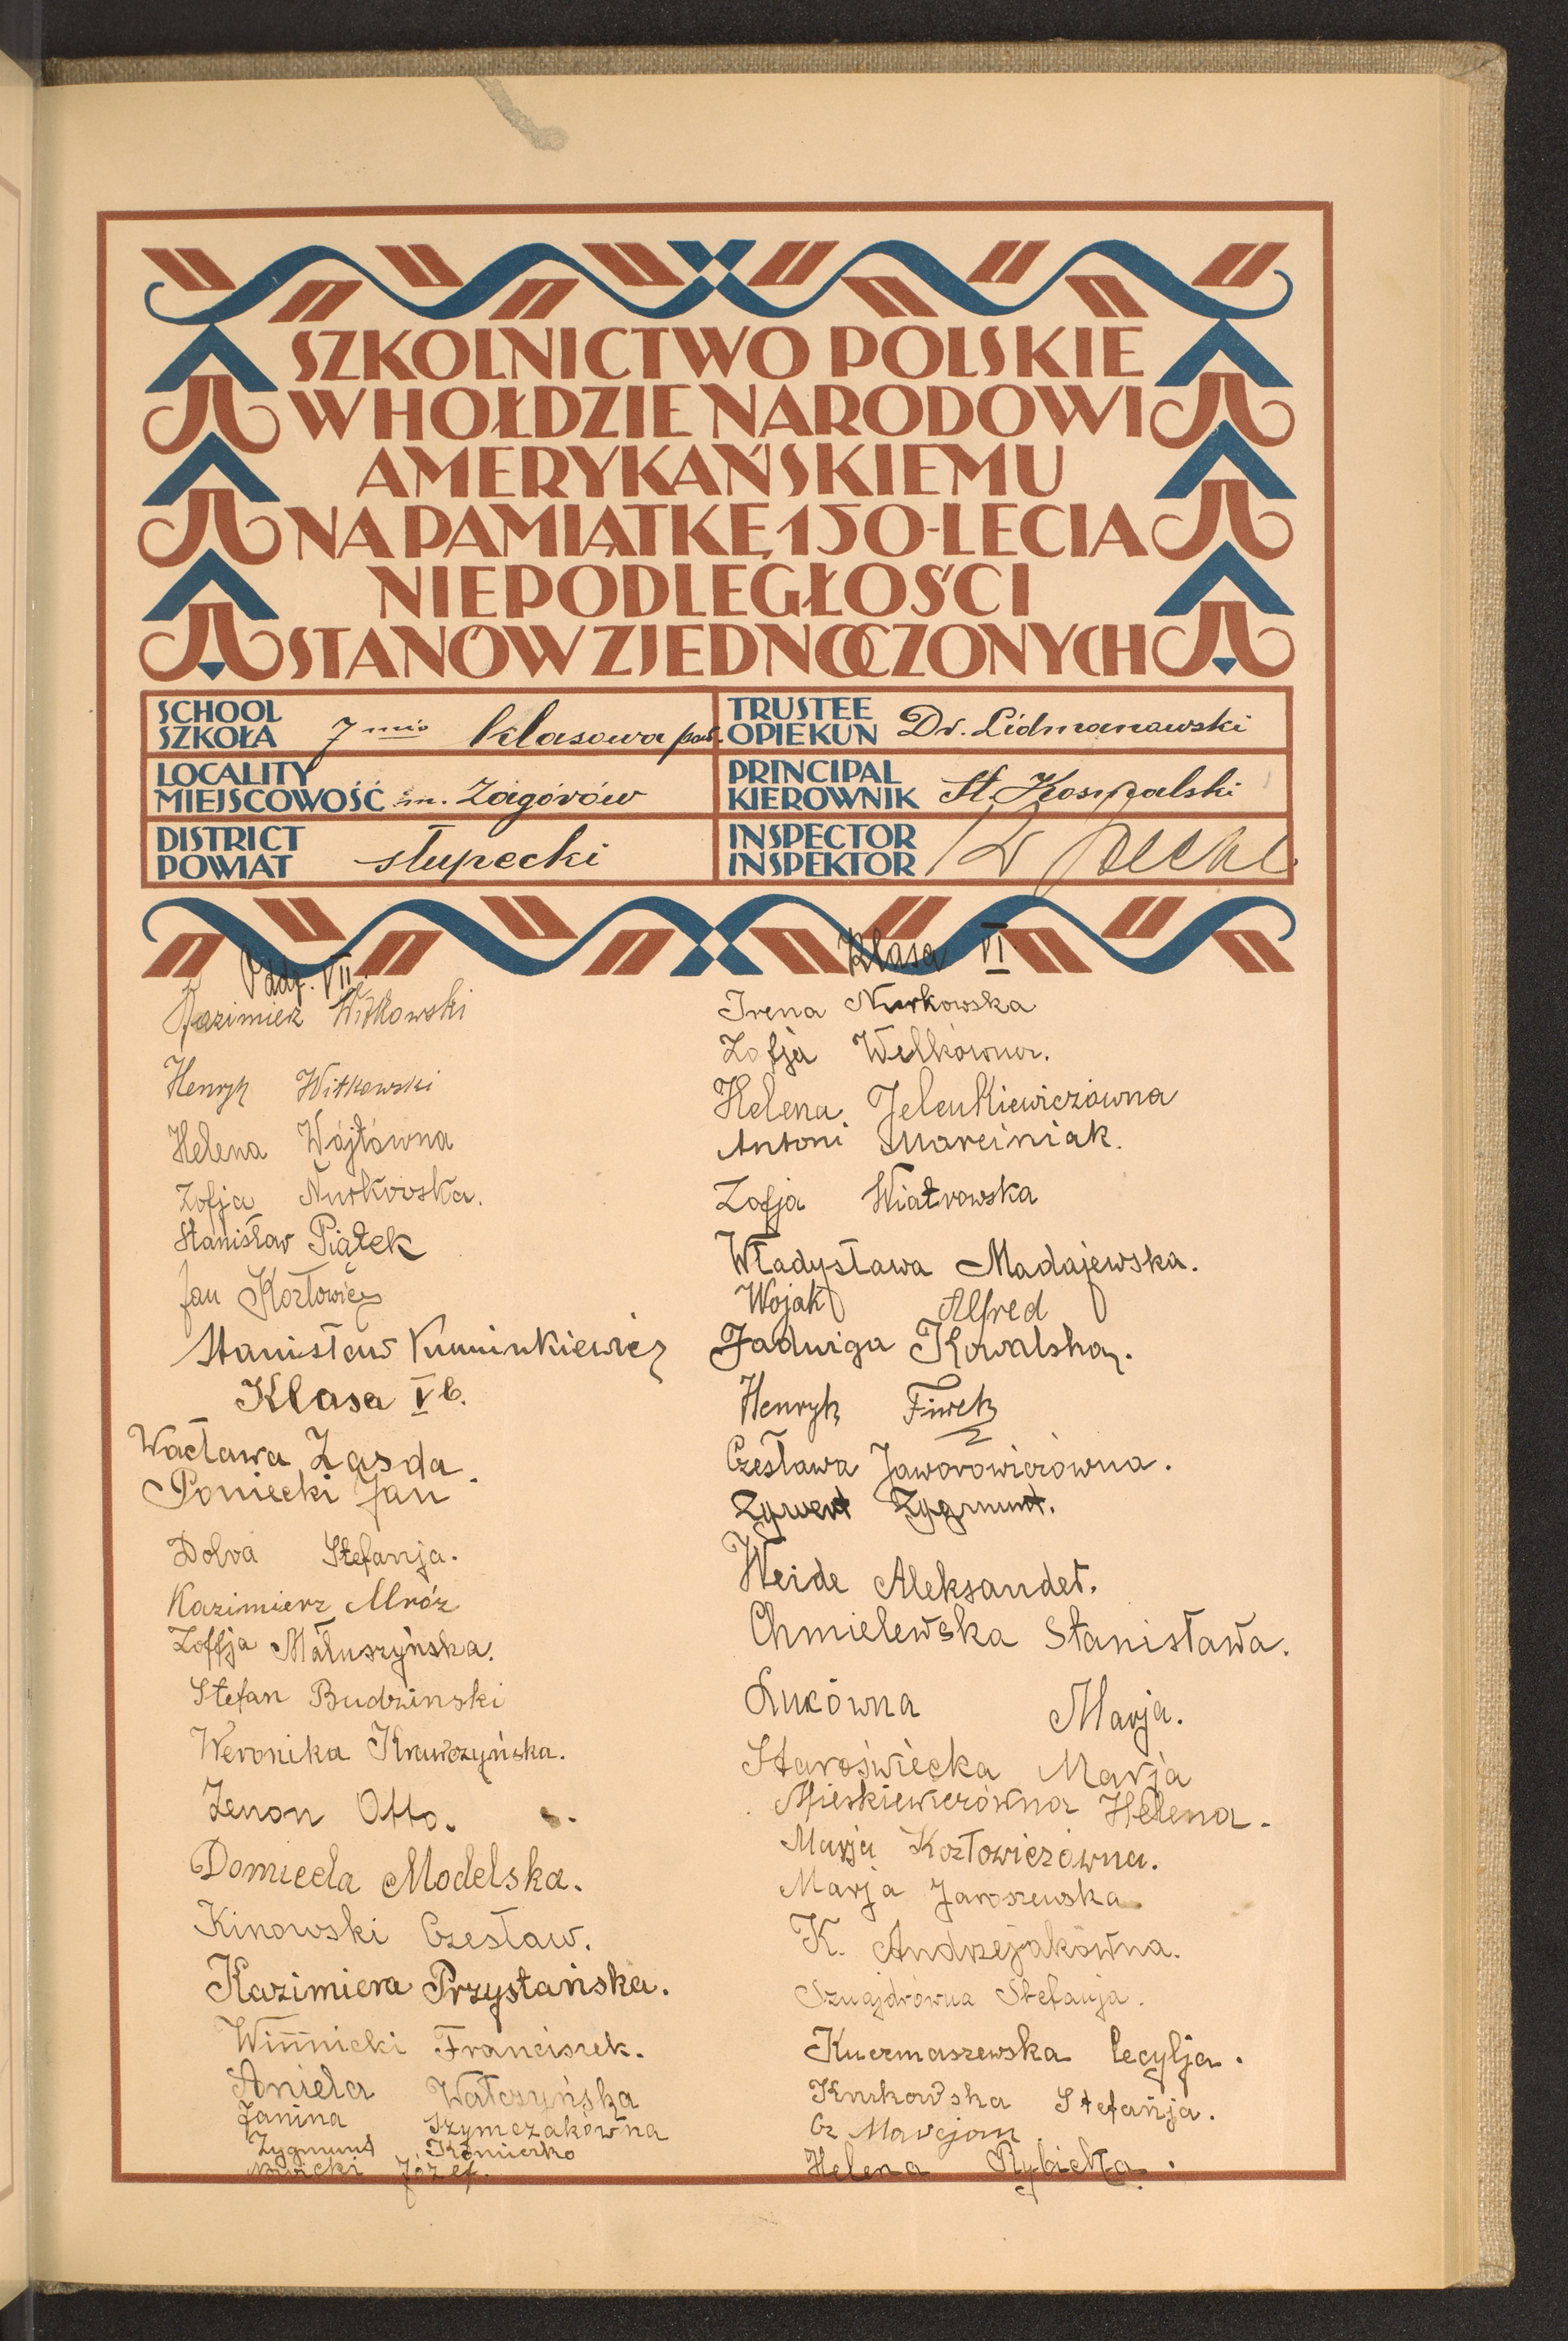 SZKOLNICTWO POLSKIE
W HOŁDZIE NARODOWI
AMERYKAŃSKIEMU
NA PAMIĄTKĘ 150-LECIA
NIEPODLEGŁOŚCI
STANÓW ZJEDNOCZONYCH
SCHOOL
SZKOŁA 7 mio klasowa pow.
LOCALITY
MIEJSCOWOŚĆ m. Zagórów
DISTRICT
POWIAT słupecki
TRUSTEE
OPIEKUN Dr. Lidmanowski
PRINCIPAL
KIEROWNIK St. Kowalski
INSPECTOR
INSPEKTOR
Oddz. VII
Kazimierz Witkowski
Henryk Witkowski
Helena Wójtówna
Zofja Nurkowska.
Stanisław Piątek
Jan Kozłowicz
Stanisław Kuminkiewicz
Klasa V b.
Wacława Zasda
Poniecki Jan
Dolva Stefanja.
Kazimierz Mróz
Zoffja Matuszyńska.
Stefan Budzinski
Weronika Krawczyńska.
Zenon Otto.
Domicela Modelska.
Kinowski Czesław.
Kazimiera Przystańska.
Winnicki Franciszek.
Aniela Wałczyńska
Janina Szymczakówna
Zygmunt Konieczko
Józef.
Klasa VI
Irena Nurkowska
Zofja Welkówna.
Helena Jelenkiewiczówna
Antoni Marciniak.
Zofja Wiatrowska
Władysława Madajewska.
Wojak Alfred
Jadwiga Kowalska.
Henryk Fiwek
Czesława Jaworowiczówna.
Zywert Zygmunt.
Weide Aleksander.
Chmielewska Stanisława.
Łukówna Marja.
Staroświecka Marja
Mieskiewiczówna Helena.
Marja Kozłowiczówna.
Marja Jaroszewska
K. Andrzejakówna.
Sznajdrówna Stefanja.
Kuczmaszewska Cecylja.
Knukowska Stefanja.
Cz Marcjan
Helena Rybicka.